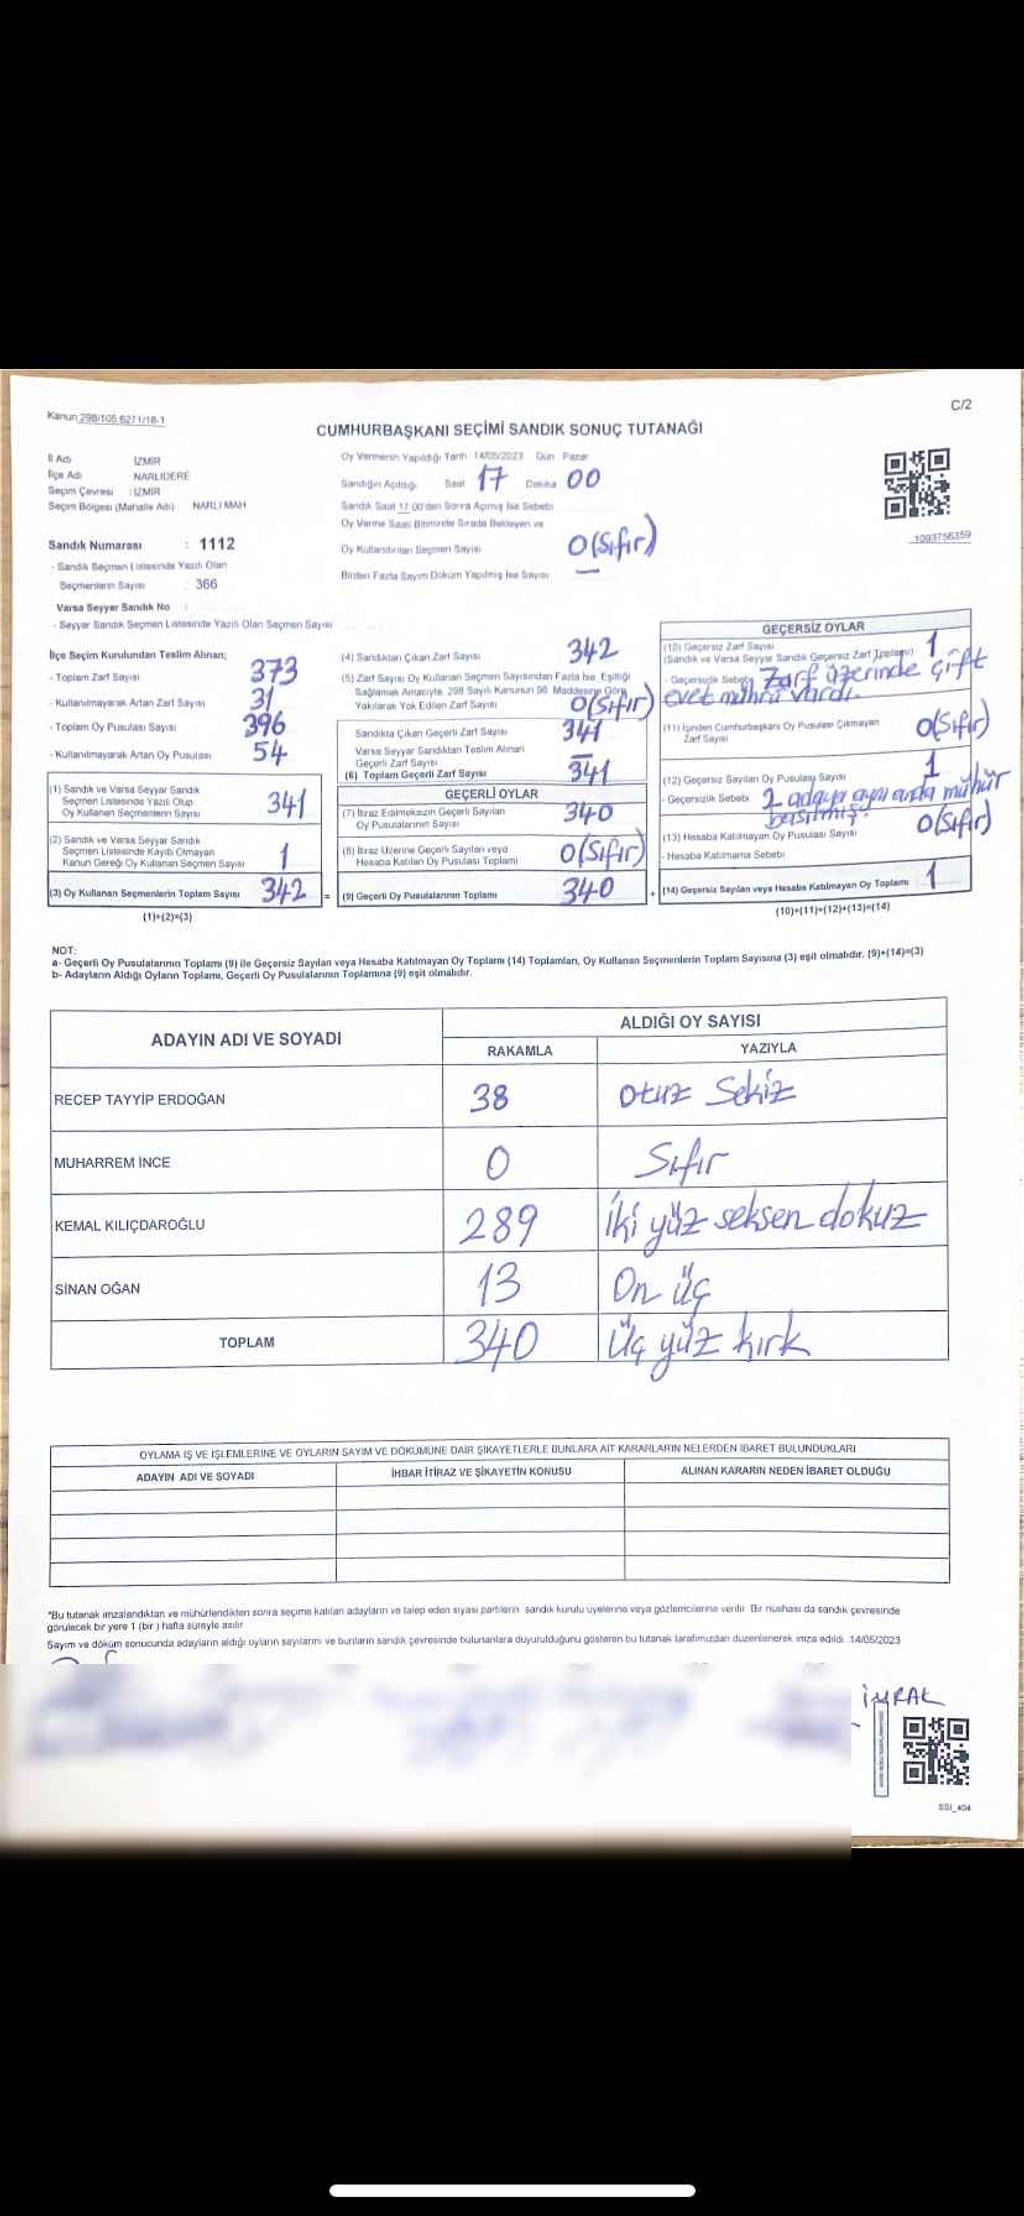 Kanun 298/105 6271/18-1
C/2
CUMHURBAŞKANI SEÇİMİ SANDIK SONUÇ TUTANAĞI
İl Adı İZMİR
İlçe Adı NARLIDERE
Seçim Çevresi : İZMİR
Seçim Bölgesi (Mahalle Adı) NARLI MAH
Sandık Numarası : 1112
- Sandık Seçmen Listesinde Yazılı Olan
Seçmenlerin Sayısı : 366
Varsa Seyyar Sandık No :
- Seyyar Sandık Seçmen Listesinde Yazılı Olan Seçmen Sayısı
Oy Vermenin Yapıldığı Tarih 14/05/2023 Gün Pazar
Sandığın Açıldığı Saat 17 Dakika 00
Sandık Saat 17:00'den Sonra Açılmış İse Sebebi
Oy Verme Saati Bitiminde Sırada Bekleyen ve
Oy Kullandırılan Seçmen Sayısı 0(Sıfır)
Birden Fazla Sayım Döküm Yapılmış İse Sayısı —
1093756359
İlçe Seçim Kurulundan Teslim Alınan;
- Toplam Zarf Sayısı 373
- Kullanılmayarak Artan Zarf Sayısı 31
- Toplam Oy Pusulası Sayısı 396
- Kullanılmayarak Artan Oy Pusulası 54
(1) Sandık ve Varsa Seyyar Sandık
Seçmen Listesinde Yazılı Olup
Oy Kullanan Seçmenlerin Sayısı 341
(2) Sandık ve Varsa Seyyar Sandık
Seçmen Listesinde Kayıtlı Olmayan
Kanun Gereği Oy Kullanan Seçmen Sayısı 1
(3) Oy Kullanan Seçmenlerin Toplam Sayısı 342 =
(1)+(2)=(3)
(4) Sandıktan Çıkan Zarf Sayısı 342
(5) Zarf Sayısı Oy Kullanan Seçmen Sayısından Fazla İse, Eşitliği
Sağlamak Amacıyla, 298 Sayılı Kanunun 98. Maddesine Göre
Yakılarak Yok Edilen Zarf Sayısı 0(Sıfır)
Sandıkta Çıkan Geçerli Zarf Sayısı 341
Varsa Seyyar Sandıktan Teslim Alınan
Geçerli Zarf Sayısı —
(6) Toplam Geçerli Zarf Sayısı 341
GEÇERLİ OYLAR
(7) İtiraz Edilmeksizin Geçerli Sayılan
Oy Pusulalarının Sayısı 340
(8) İtiraz Üzerine Geçerli Sayılan veya
Hesaba Katılan Oy Pusulası Toplamı 0(Sıfır)
(9) Geçerli Oy Pusulalarının Toplamı 340 +
GEÇERSİZ OYLAR
(10) Geçersiz Zarf Sayısı
(Sandık ve Varsa Seyyar Sandık Geçersiz Zarf Toplamı) 1
- Geçersizlik Sebebi Zarf üzerinde çift
evet mührü vardı.
(11) İçinden Cumhurbaşkanı Oy Pusulası Çıkmayan
Zarf Sayısı 0(Sıfır)
(12) Geçersiz Sayılan Oy Pusulası Sayısı 1
- Geçersizlik Sebebi 2 adaya aynı anda mühür
basılmış.
(13) Hesaba Katılmayan Oy Pusulası Sayısı 0(Sıfır)
- Hesaba Katılmama Sebebi
(14) Geçersiz Sayılan veya Hesaba Katılmayan Oy Toplamı 1
(10)+(11)+(12)+(13)=(14)
NOT:
a- Geçerli Oy Pusulalarının Toplamı (9) ile Geçersiz Sayılan veya Hesaba Katılmayan Oy Toplamı (14) Toplamları, Oy Kullanan Seçmenlerin Toplam Sayısına (3) eşit olmalıdır. (9)+(14)=(3)
b- Adayların Aldığı Oyların Toplamı, Geçerli Oy Pusulalarının Toplamına (9) eşit olmalıdır.
ADAYIN ADI VE SOYADI
ALDIĞI OY SAYISI
RAKAMLA YAZIYLA
RECEP TAYYİP ERDOĞAN 38 Otuz Sekiz
MUHARREM İNCE 0 Sıfır
KEMAL KILIÇDAROĞLU 289 İki yüz seksen dokuz
SİNAN OĞAN 13 On üç
TOPLAM 340 Üç yüz kırk
OYLAMA İŞ VE İŞLEMLERİNE VE OYLARIN SAYIM VE DÖKÜMÜNE DAİR ŞİKAYETLERLE BUNLARA AİT KARARLARIN NELERDEN İBARET BULUNDUKLARI
ADAYIN ADI VE SOYADI İHBAR İTİRAZ VE ŞİKAYETİN KONUSU ALINAN KARARIN NEDEN İBARET OLDUĞU
*Bu tutanak imzalandıktan ve mühürlendikten sonra seçime katılan adayların ve talep eden siyasi partilerin sandık kurulu üyelerine veya gözlemcilerine verilir. Bir nüshası da sandık çevresinde
görülecek bir yere 1 (bir) hafta süreyle asılır.
Sayım ve döküm sonucunda adayların aldığı oyların sayılarını ve bunların sandık çevresinde bulunanlara duyurulduğunu gösteren bu tutanak tarafımızdan düzenlenerek imza edildi. 14/05/2023
SSI_404